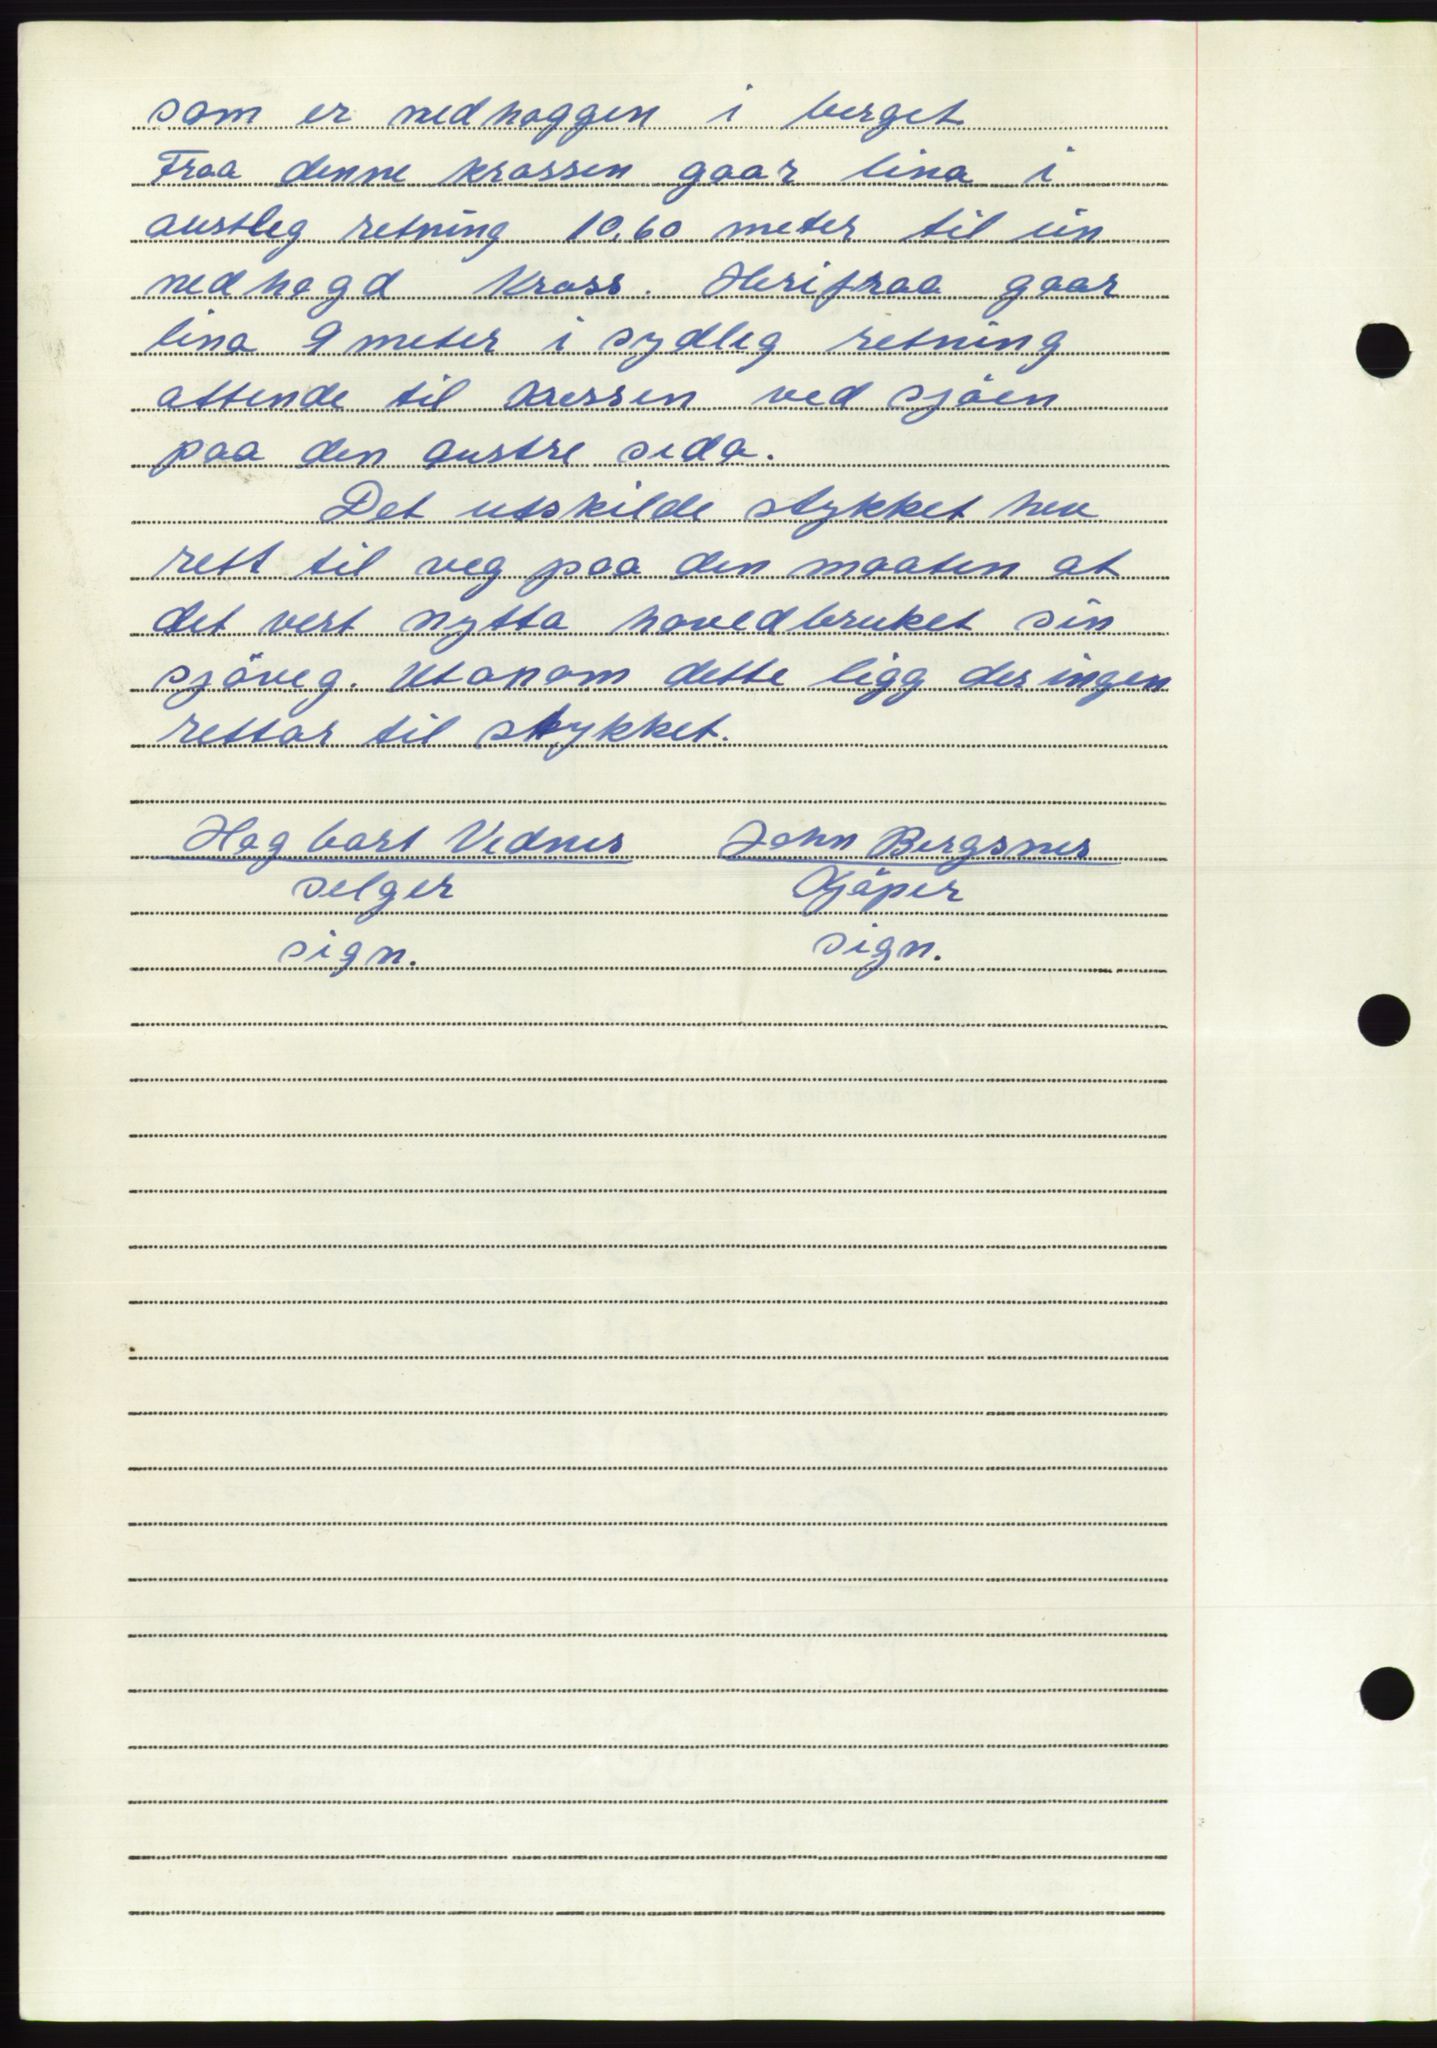 som er nedhoggen i berget
Fraa denne krossen gaar lina i
austleg retning 10,60 meter til ein
nedhogd Kross. Herifraa gaar
lina 9 meter i sydleg retning
attende til krossen ved sjöen
paa den austre sida.
Det utskilde stykket hev
rett til veg paa den maaten at
det vert nytta hovedbruket sin
sjöveg. Utanom dette ligg der ingen
rettar til stykket.
Hagbart Vednes John Bergsnes
selger Kjöper
sign. sign.